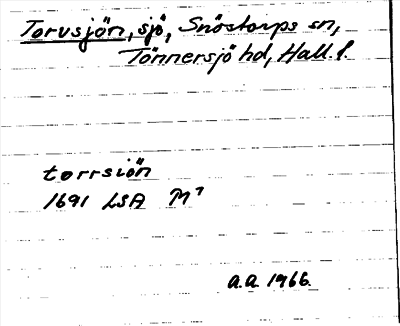 Torvsjön, sjö, Snöstorps sn,
Tönnersjö hd, Hall. l.
torrsiön
1691 LSA M⁷
A.A. 1966.